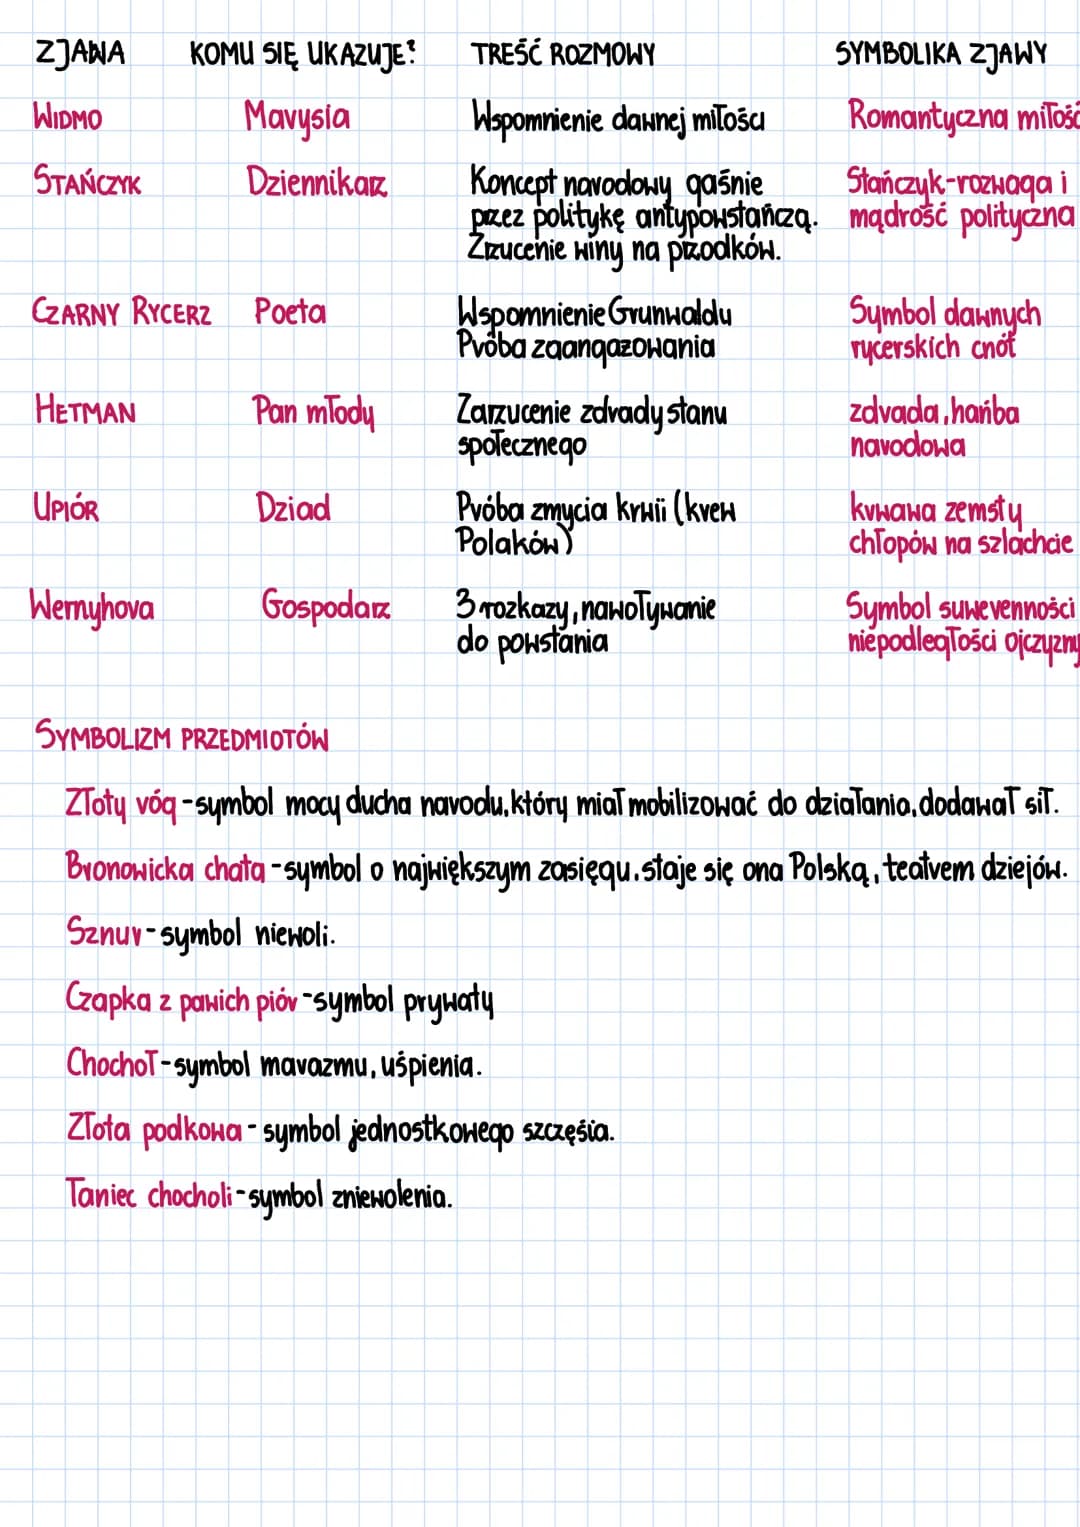 ZJAWA KOMU SIĘ UKAZUJE? TREŚĆ ROZMOWY SYMBOLIKA ZJAWY
WIDMO Marysia Wspomnienie dawnej miłości Romantyczna miłość
STAŃCZYK Dziennikarz Koncept narodowy gaśnie Stańczyk-rozwaga i
przez politykę antypowstańczą. mądrość polityczna
Zrzucenie winy na przodków.
CZARNY RYCERZ Poeta Wspomnienie Grunwaldu Symbol dawnych
Próba zaangażowania rycerskich cnót
HETMAN Pan młody Zarzucenie zdrady stanu zdrada, hańba
społecznego narodowa
UPIÓR Dziad Próba zmycia krwii (krew krwawa zemsty
Polaków) chłopów na szlachcie
Wernyhora Gospodarz 3 rozkazy, nawoływanie Symbol suwerenności
do powstania niepodległości ojczyzny
SYMBOLIZM PRZEDMIOTÓW
Złoty róg - symbol mocy ducha narodu, który miał mobilizować do działania, dodawał sił.
Bronowicka chata - symbol o największym zasięgu. staje się ona Polską, teatrem dziejów.
Sznur - symbol niewoli.
Czapka z pawich piór - symbol prywaty
Chochoł - symbol marazmu, uśpienia.
Złota podkowa - symbol jednostkowego szczęśia.
Taniec chocholi - symbol zniewolenia.